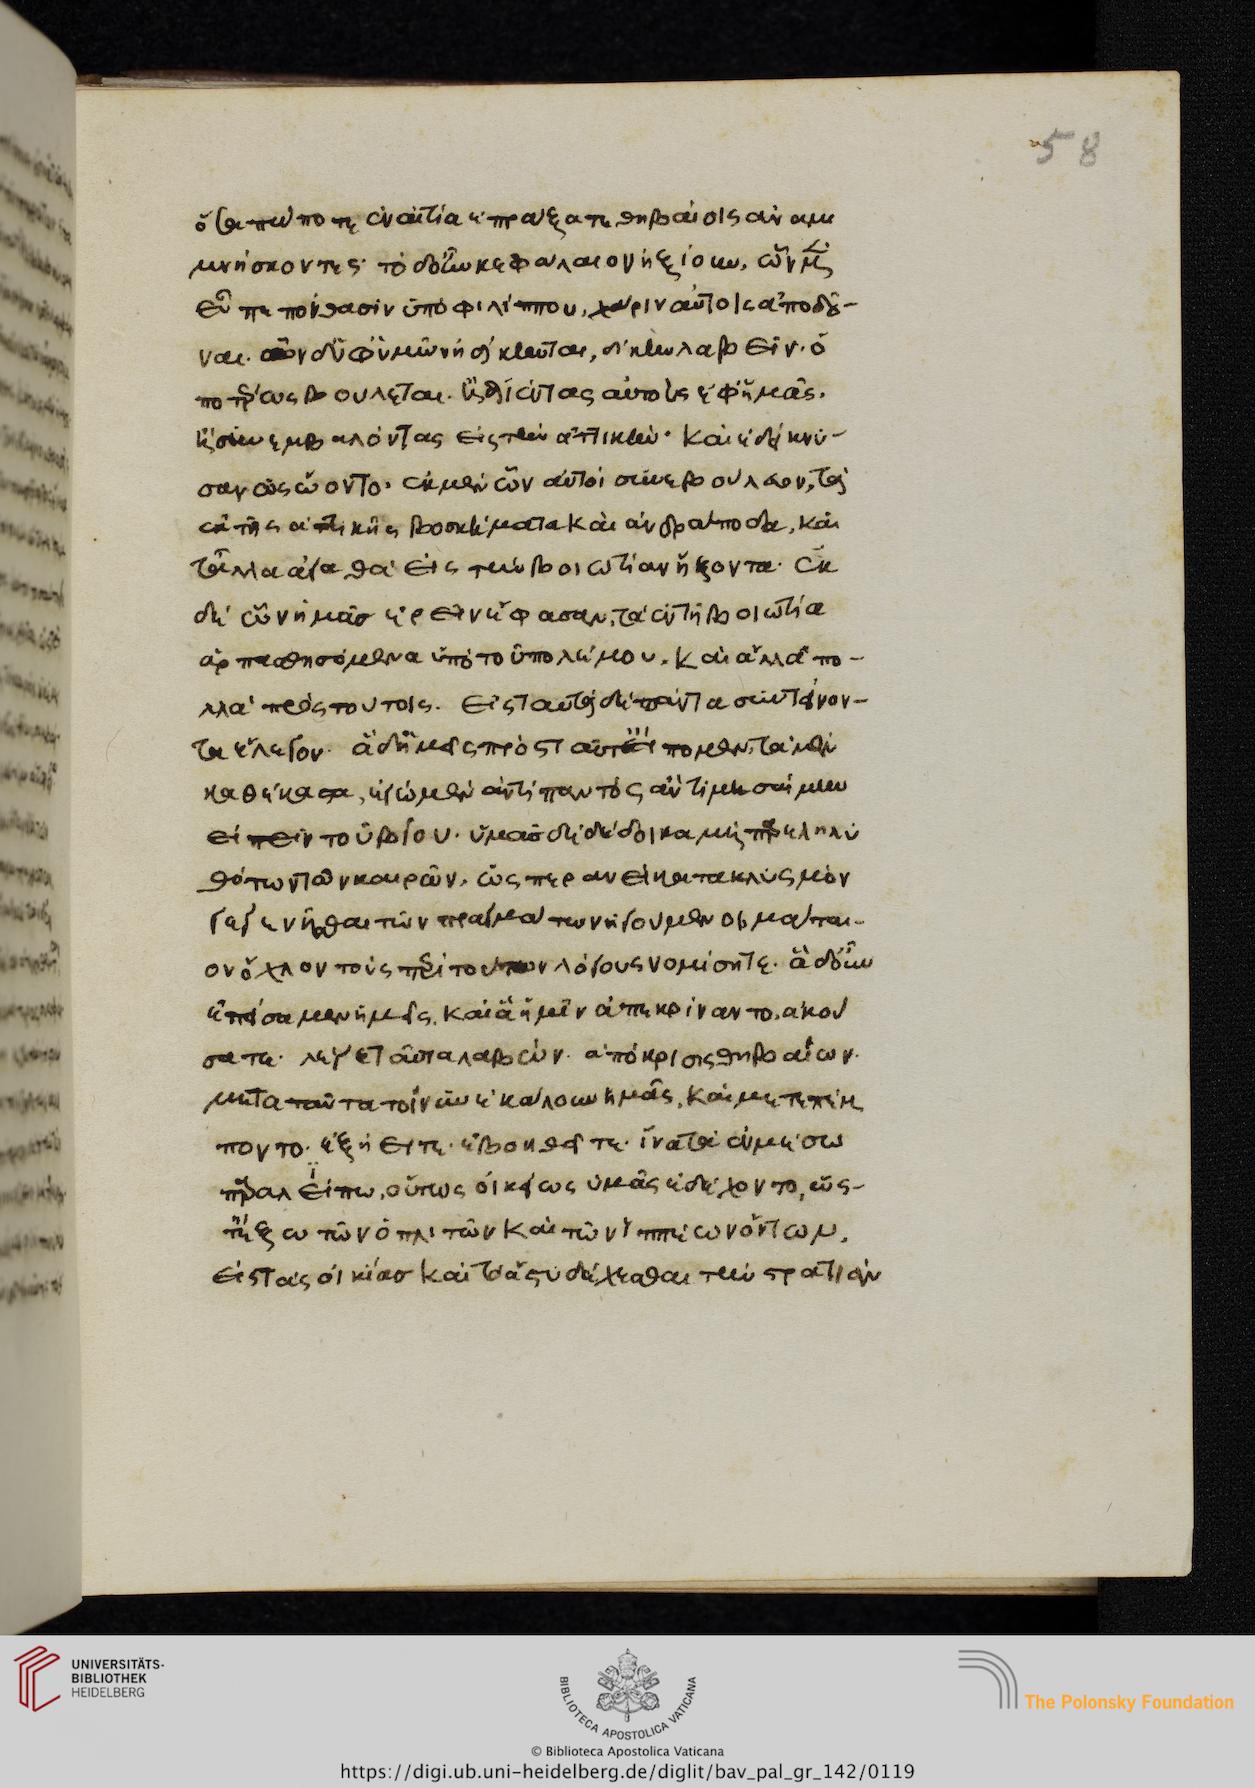 58
ὅσα πώποτε ἐναντία ἐπράξατε θηβαίοις ἀναμι
μνήσκοντες· τὸ δ' οὖν κεφάλαιον ἠξίουν, ὧν μὲν
εὖ πεπόνθασιν ὑπὸ φιλίππου, χάριν αὐτοῖς ἀποδοῦ-
ναι. ὧν δ' ὑφ' ὑμῶν ἠδίκηνται, δίκην λαβεῖν. ὁ
ποτέρως βούλεται. ἢ διέντας αὐτοὺς ἐφ' ἡμᾶς.
ἢ συνεμβαλόντας εἰς τὴν ἀττικήν· καὶ ἐδείκνυ-
σαν ὡς ᾤοντο· ἐκ μὲν ὧν αὐτοὶ συνεβούλευον, τὰ
ἐκ τῆς ἀττικῆς βοσκήματα καὶ ἀνδράποδα, καὶ
τἆλλα ἀγαθὰ εἰς τὴν βοιωτίαν ἥξοντα· ἐκ
δὲ ὧν ἡμᾶς ἐρεῖν ἔφασαν, τὰ ἐν τῇ βοιωτίᾳ
διαρπασθησόμενα ὑπὸ τοῦ πολέμου. καὶ ἄλλα πο-
λλὰ πρὸς τούτοις. εἰς ταὐτὰ δὲ πάντα συντείνον-
τα ἔλεγον. ἃ δ' ἡμεῖς πρὸς ταῦτα ἀντείπομεν, τὰ μὲν
καθέκαστα, ἐγὼ μὲν ἀντὶ παντὸς ἂν τιμησαίμην
εἰπεῖν τοῦ βίου. ὑμᾶς δὲ δέδοικα μὴ παρεληλυ
θότων τῶν καιρῶν, ὥσπερ ἂν εἰ κατακλυσμὸν
γεγενῆσθαι τῶν πραγμάτων ἡγούμενοι μάται-
ον ὄχλον τοὺς περὶ τούτων λόγους νομίσητε. ἃ δ' οὖν
ἐπείσαμεν ἡμεῖς, καὶ ἃ ἡμῖν ἀπεκρίναντο, ἀκού
σατε. λέγε ταῦτα λαβών. ἀπόκρισις θηβαίων.
μετὰ ταῦτα τοίνυν ἐκάλουν ἡμᾶς, καὶ μετεπέμ
ποντο. ἐξῄειτε. ἐβοηθεῖτε. ἵνα τὰ ἐν μέσῳ
παραλείπω, οὕτως οἰκείως ὑμᾶς ἐδέχοντο, ὥς-
τε ἔξω τῶν ὁπλιτῶν καὶ τῶν ἱππέων ὄντων,
εἰς τὰς οἰκίας καὶ τὸ ἄστυ δέχεσθαι τὴν στρατιὰν
UNIVERSITÄTS-
BIBLIOTHEK
HEIDELBERG
BIBLIOTECA APOSTOLICA VATICANA
The Polonsky Foundation
© Biblioteca Apostolica Vaticana
https://digi.ub.uni-heidelberg.de/diglit/bav_pal_gr_142/0119